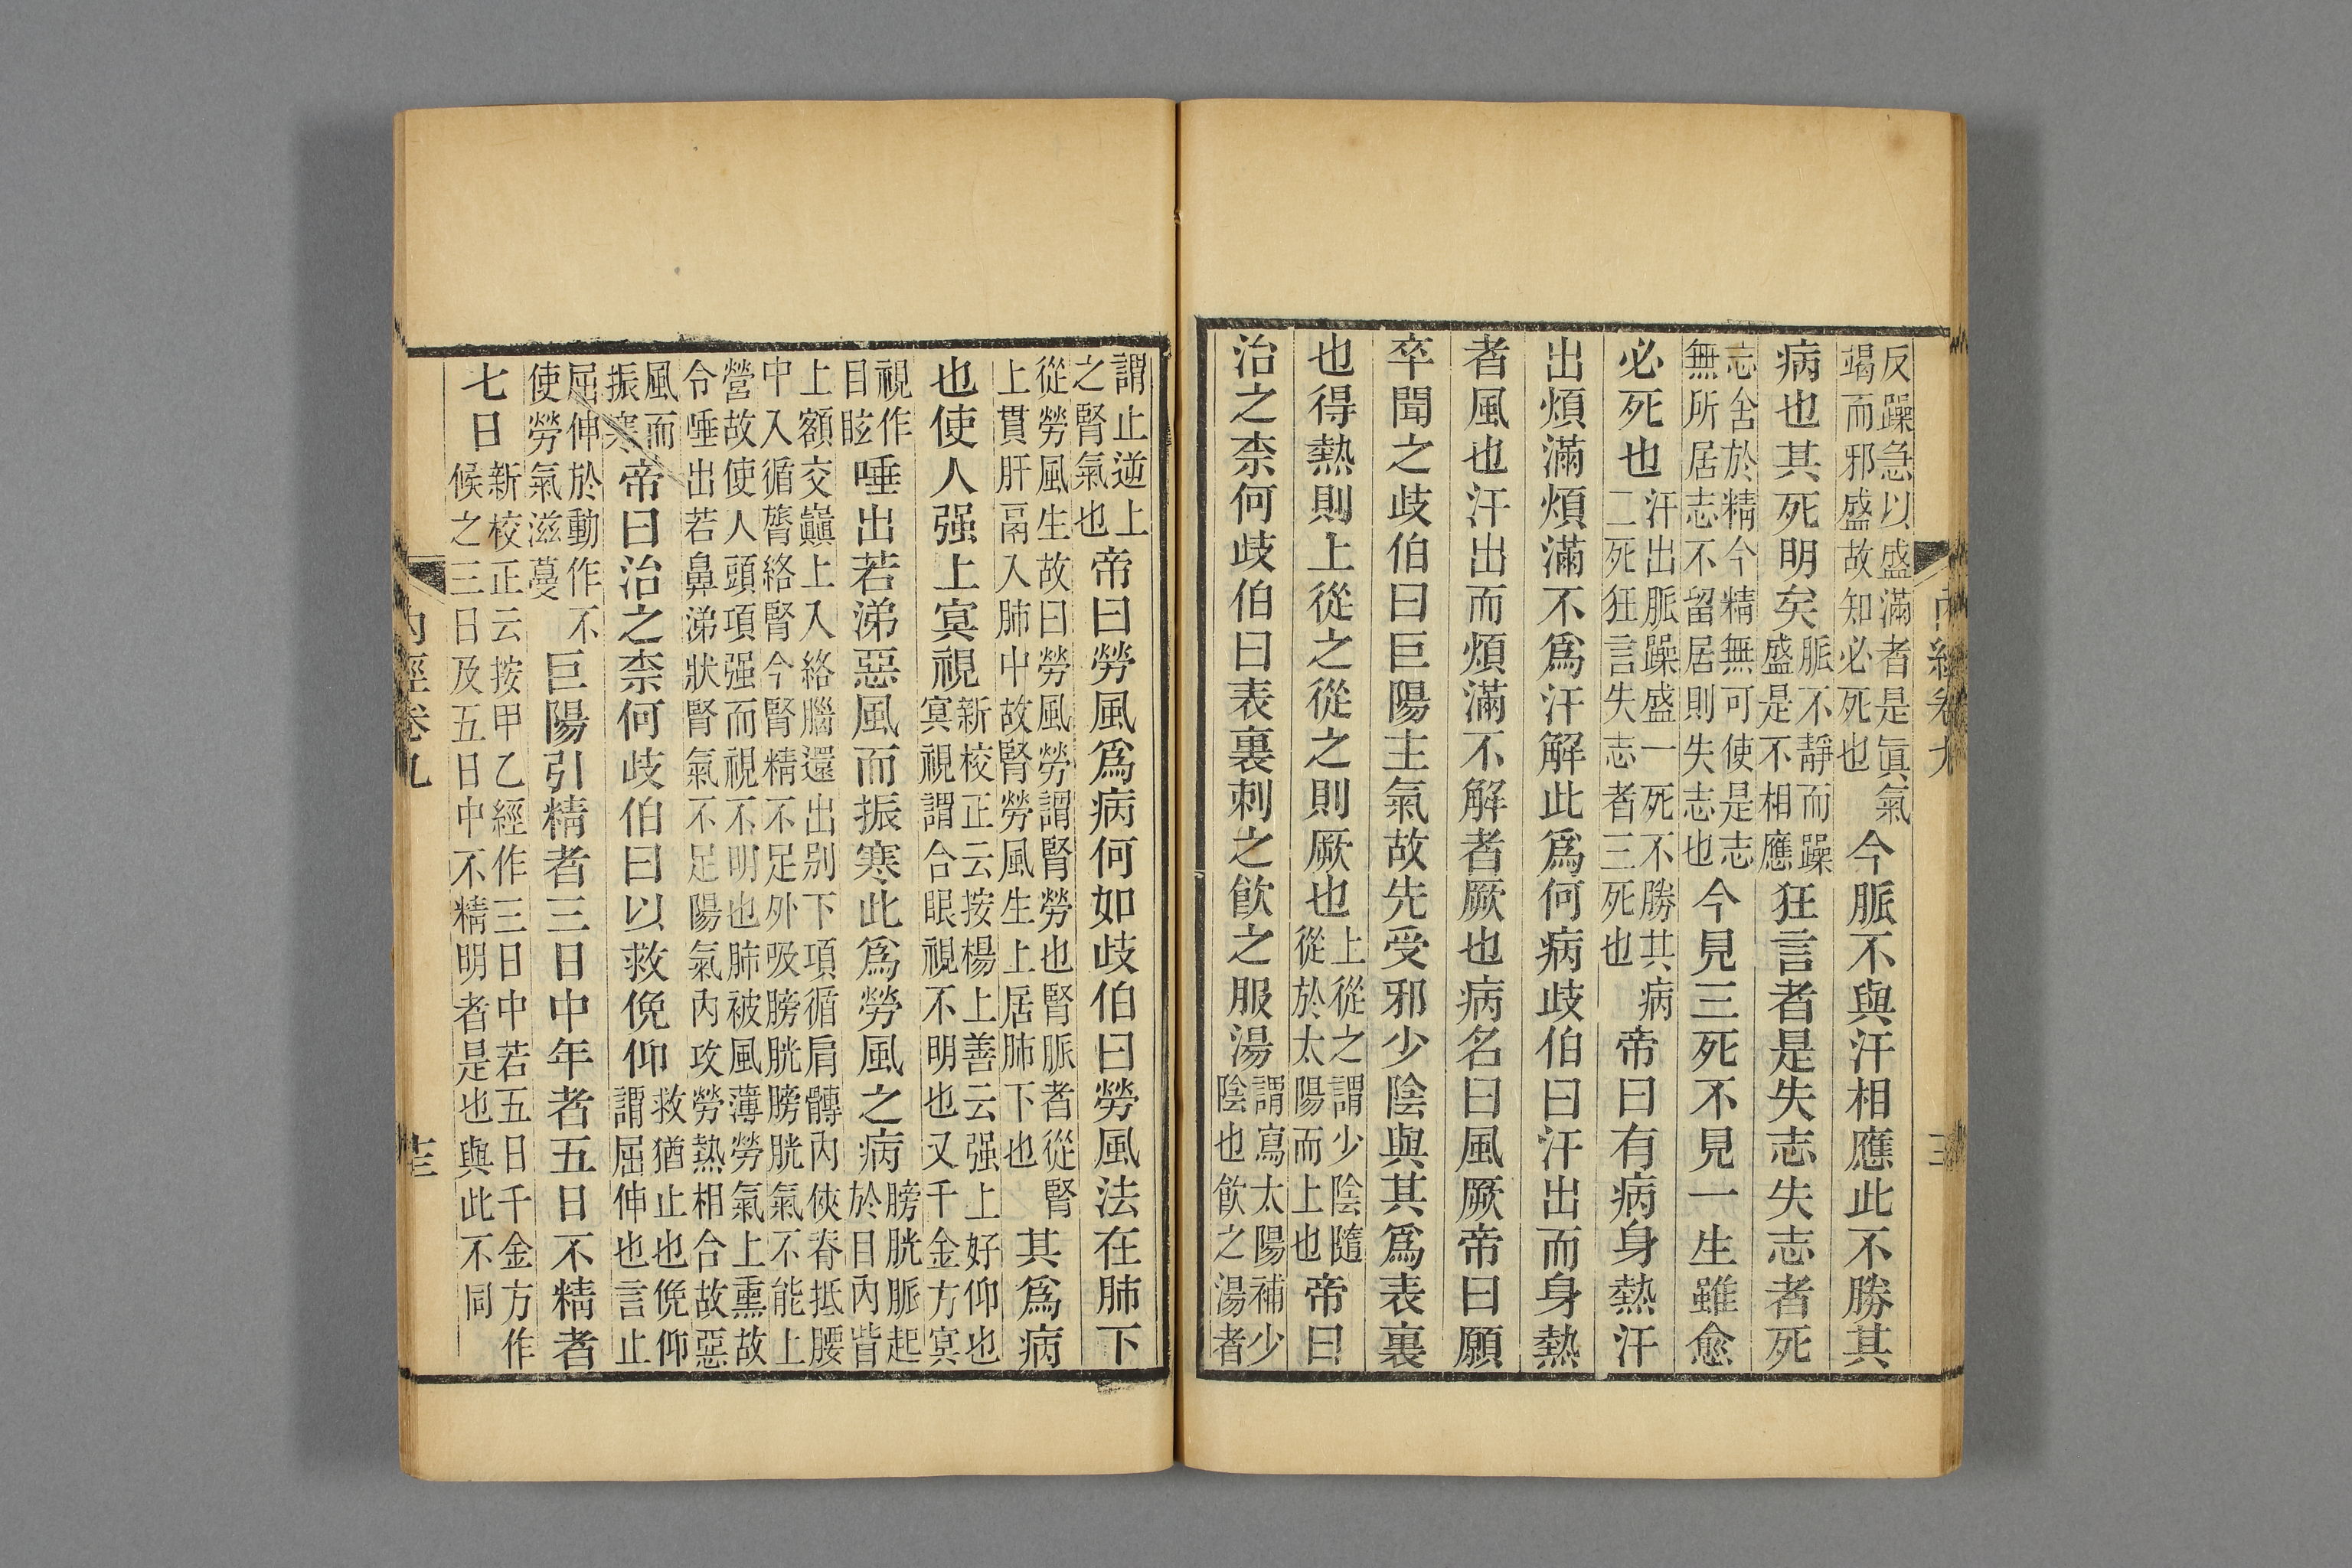 反躁急以盛滿者是眞氣竭而邪盛故知必死也今脈不與汗相應此不勝其
病也其死明矣脈不靜而躁盛是不相應狂言者是失志失志者死
志舍於精今精無可使是志無所居志不留居則失志也今見三死不見一生雖愈
必死也汗出脈躁盛一死不勝其病二死狂言失志者三死也帝曰有病身熱汗
出煩滿煩滿不爲汗解此爲何病歧伯曰汗出而身熱
者風也汗出而煩滿不解者厥也病名曰風厥帝曰願
卒聞之歧伯曰巨陽主氣故先受邪少陰與其爲表裏
也得熱則上從之從之則厥也上從之謂少陰隨從於太陽而上也帝曰
治之柰何歧伯曰表裏刺之飲之服湯謂寫太陽補少陰也飲之湯者
謂止逆上之腎氣也帝曰勞風爲病何如歧伯曰勞風法在肺下
從勞風生故曰勞風勞謂腎勞也腎脈者從腎上貫肝鬲入肺中故腎勞風生上居肺下也其爲病
也使人强上冥視新校正云按楊上善云强上好仰也冥視謂合眼視不明也又千金方冥
視作目眩唾出若涕惡風而振寒此爲勞風之病膀胱脈起於目內眥
上額交巔上入絡腦還出别下項循肩髆內俠脊抵腰中入循膂絡腎今腎精不足外吸膀胱膀胱氣不能上
營故使人頭項强而視不明也肺被風薄勞氣上熏故令唾出若鼻涕狀腎氣不足陽氣內攻勞熱相合故惡
風而振寒帝曰治之柰何歧伯曰以救俛仰救猶止也俛仰謂屈伸也言止
屈伸於動作不使勞氣滋蔓巨陽引精者三日中年者五日不精者
七日新校正云按甲乙經作三日中若五日千金方作候之三日及五日中不精明者是也與此不同
內經卷九